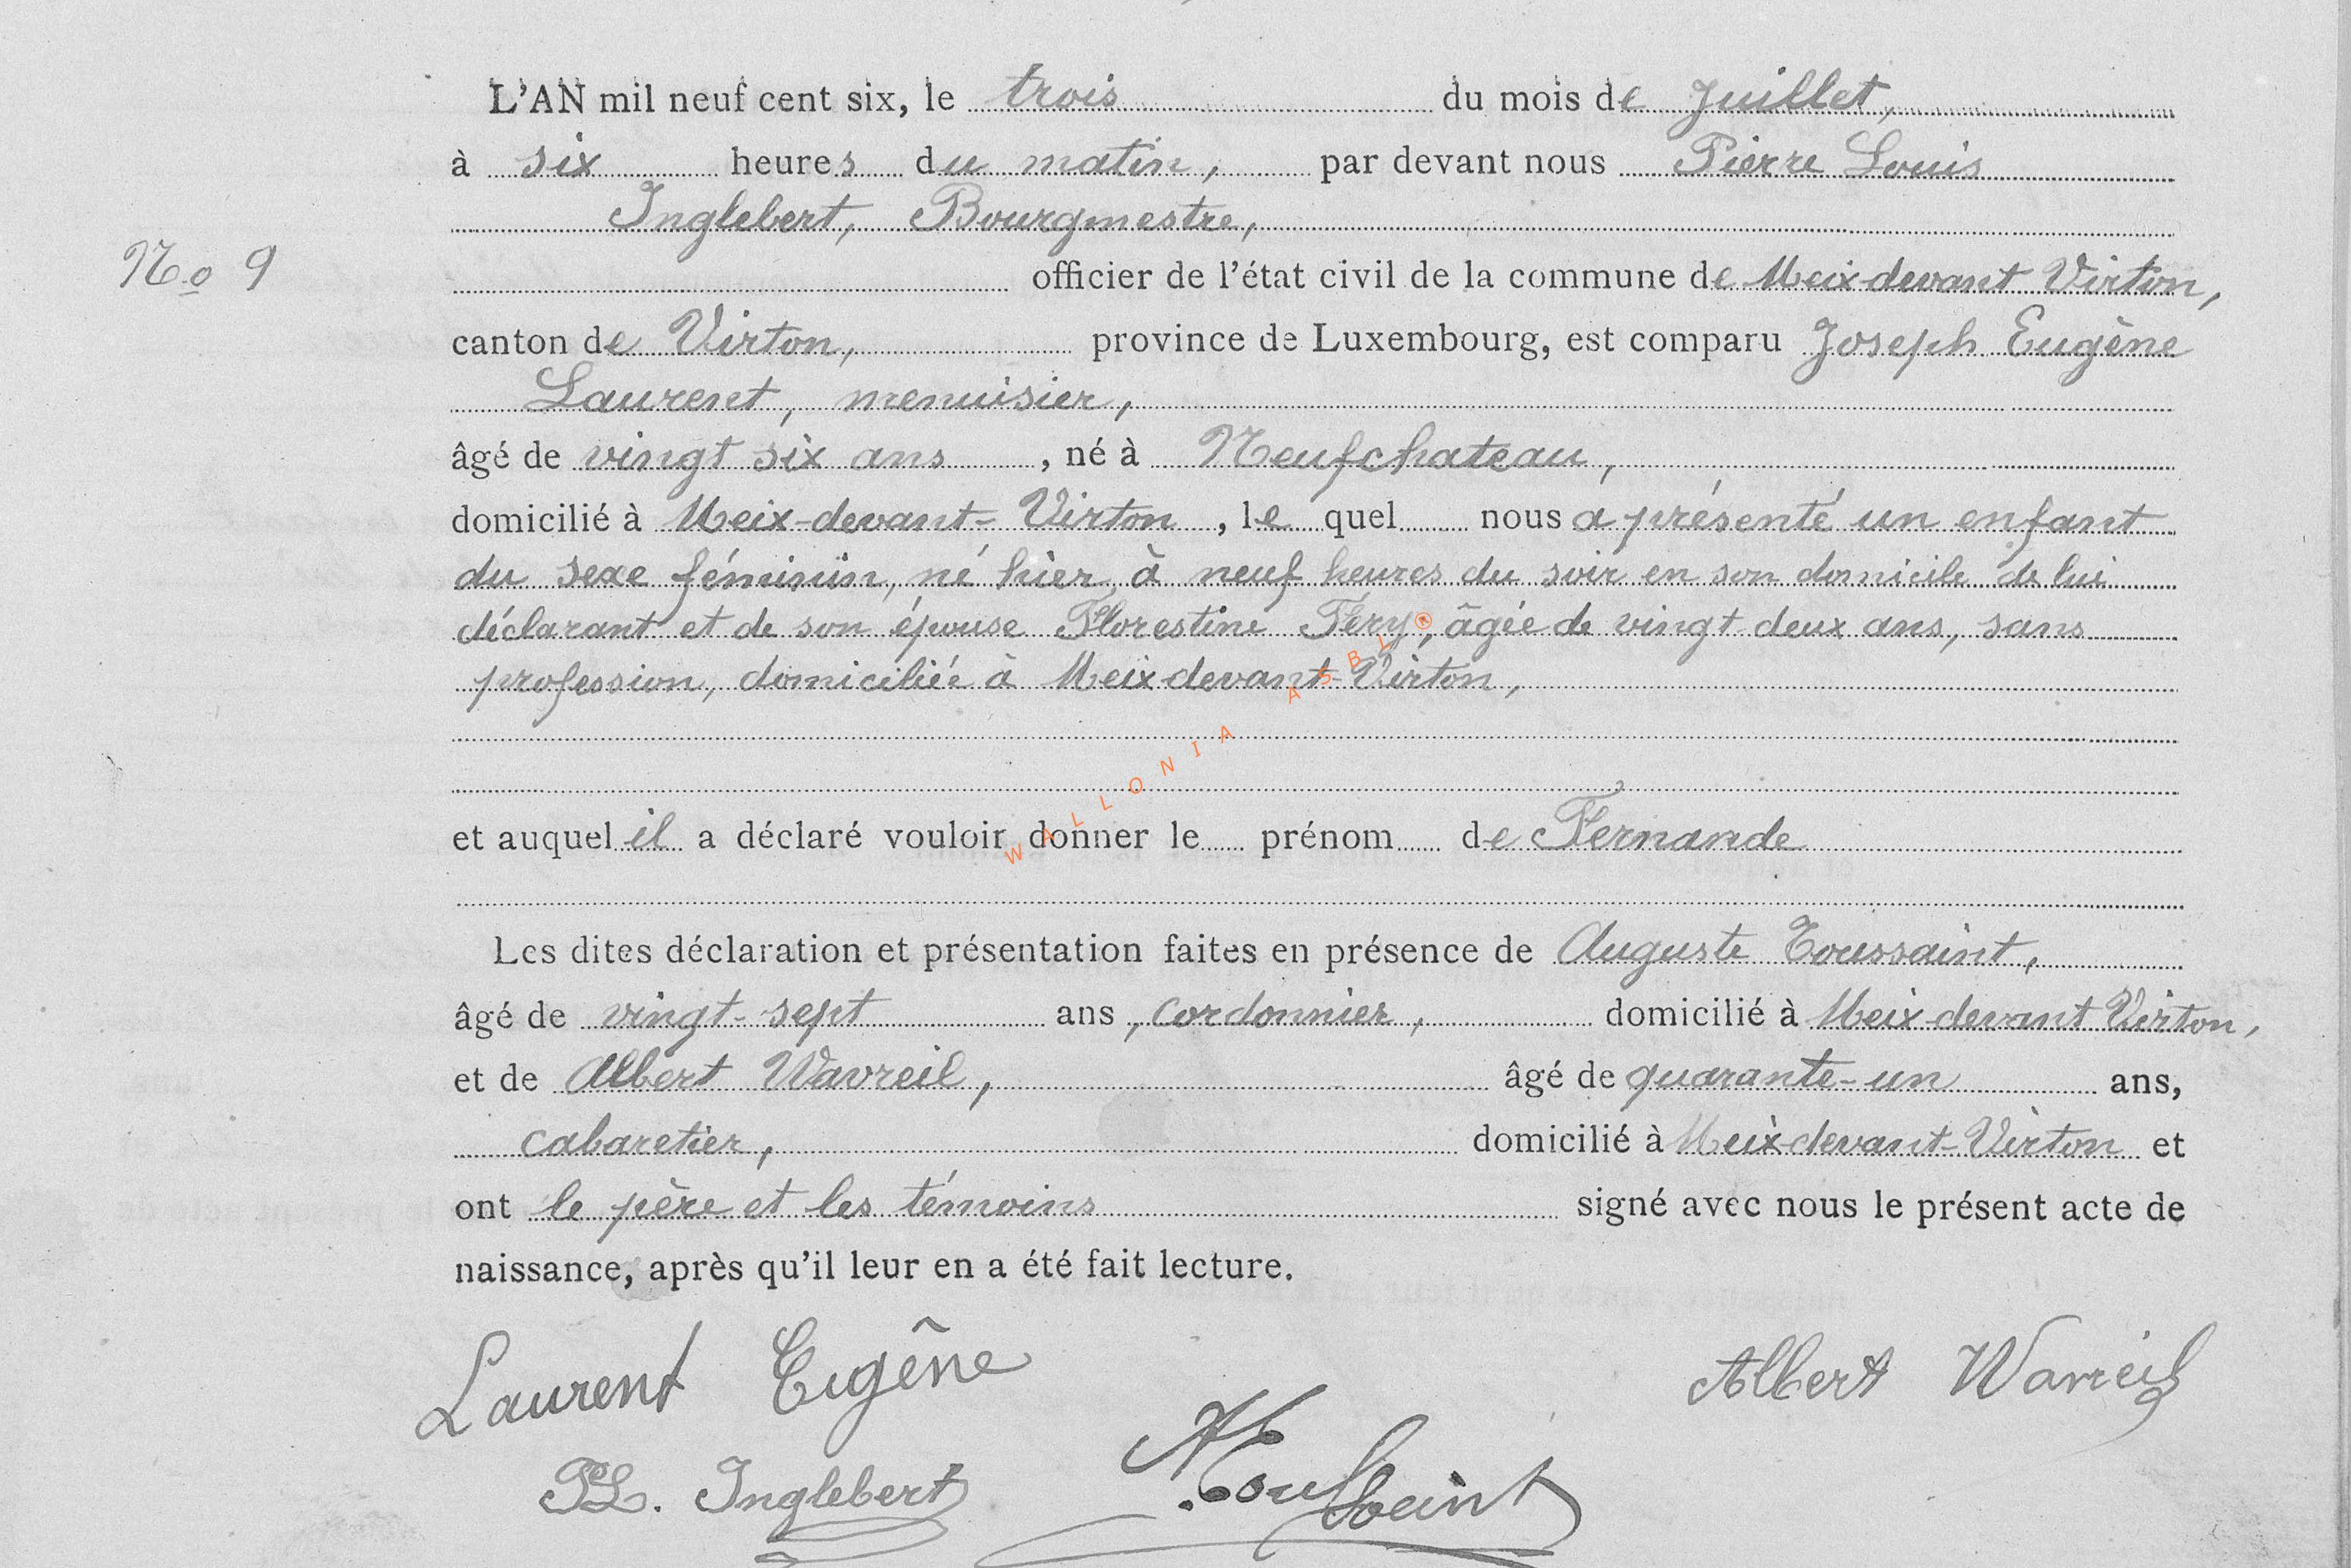 L'AN mil neuf cent six, le trois du mois de Juillet,
à six heures du matin, par devant nous Pierre Louis
Inglebert, Bourgmestre,
No 9
officier de l'état civil de la commune de Meix-devant Virton,
canton de Virton, province de Luxembourg, est comparu Joseph Eugène
Laurent, menuisier,
âgé de vingt six ans, né à Neufchateau,
domicilié à Meix-devant-Virton, le quel nous a présenté un enfant
du sexe féminin, né hier, à neuf heures du soir en son domicile de lui
déclarant et de son épouse Florestine Féry, âgée de vingt-deux ans, sans
profession, domiciliée à Meix-devant-Virton,
WALLONIA ASBL ®
et auquel il a déclaré vouloir donner le prénom de Fernande
Les dites déclaration et présentation faites en présence de Auguste Toussaint,
âgé de vingt-sept ans, cordonnier, domicilié à Meix-devant Virton,
et de Albert Wavreil, âgé de quarante-un ans,
cabaretier, domicilié à Meix-devant-Virton et
ont le père et les témoins signé avec nous le présent acte de
naissance, après qu'il leur en a été fait lecture.
Laurent Eugêne Albert Wavreil
PL. Inglebert A Toussaint